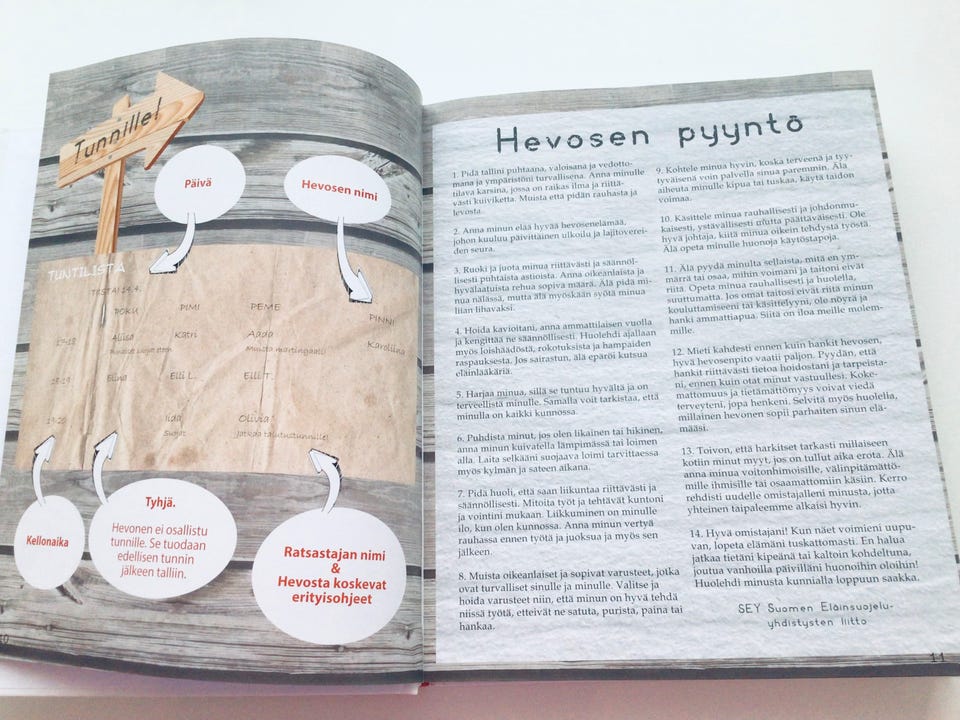 Tunnille!
Päivä
Hevosen nimi
TUNTILISTA
TIISTAI 14.4.
POKU PIMI PEME PINNI
17-18 Aliisa Katri Aada Karoliina
Punaiset suojat eteen Muista martingaali!
18-19 Elina Elli L. Elli T.
19-20 Iida Olivia
Suojat Jatkaa talutustunnille!
Kellonaika
Tyhjä.
Hevonen ei osallistu
tunnille. Se tuodaan
edellisen tunnin
jälkeen talliin.
Ratsastajan nimi
&
Hevosta koskevat
erityisohjeet
10
Hevosen pyyntö
1. Pidä tallini puhtaana, valoisana ja vedotto-
mana ja ympäristöni turvallisena. Anna minulle
tilava karsina, jossa on raikas ilma ja riittä-
västi kuiviketta. Muista että pidän rauhasta ja
levosta.
2. Anna minun elää hyvää hevosenelämää,
johon kuuluu päivittäinen ulkoilu ja lajitoverei-
den seura.
3. Ruoki ja juota minua riittävästi ja säännöl-
lisesti puhtaista astioista. Anna oikeanlaista ja
hyvälaatuista rehua sopiva määrä. Älä pidä mi-
nua nälässä, mutta älä myöskään syötä minua
liian lihavaksi.
4. Hoida kavioitani, anna ammattilaisen vuolla
ja kengittää ne säännöllisesti. Huolehdi ajallaan
myös loishäädöstä, rokotuksista ja hampaiden
raspauksesta. Jos sairastun, älä epäröi kutsua
eläinlääkäriä.
5. Harjaa minua, sillä se tuntuu hyvältä ja on
terveellistä minulle. Samalla voit tarkistaa, että
minulla on kaikki kunnossa.
6. Puhdista minut, jos olen likainen tai hikinen,
anna minun kuivatella lämpimässä tai loimen
alla. Laita selkääni suojaava loimi tarvittaessa
myös kylmän ja sateen aikana.
7. Pidä huoli, että saan liikuntaa riittävästi ja
säännöllisesti. Mitoita työt ja tehtävät kuntoni
ja vointini mukaan. Liikkuminen on minulle
ilo, kun olen kunnossa. Anna minun vertyä
rauhassa ennen työtä ja juoksua ja myös sen
jälkeen.
8. Muista oikeanlaiset ja sopivat varusteet, jotka
ovat turvalliset sinulle ja minulle. Valitse ja
hoida varusteet niin, että minun on hyvä tehdä
niissä työtä, etteivät ne satuta, purista, paina tai
hankaa.
9. Kohtele minua hyvin, koska terveenä ja tyy-
tyväisenä voin palvella sinua paremmin. Älä
aiheuta minulle kipua tai tuskaa, käytä taidon
voimaa.
10. Käsittele minua rauhallisesti ja johdonmu-
kaisesti, ystävällisesti mutta päättäväisesti. Ole
hyvä johtaja, kiitä minua oikein tehdystä työstä.
Älä opeta minulle huonoja käytöstapoja.
11. Älä pyydä minulta sellaista, mitä en ym-
märrä tai osaa, mihin voimani ja taitoni eivät
riitä. Opeta minua rauhallisesti ja huolella,
suuttumatta. Jos omat taitosi eivät riitä minun
kouluttamiseeni tai käsittelyyni, ole nöyrä ja
hanki ammattiapua. Siitä on iloa meille molem-
mille.
12. Mieti kahdesti ennen kuin hankit hevosen,
hyvä hevosenpito vaatii paljon. Pyydän, että
hankit riittävästi tietoa hoidostani ja tarpeista-
ni, ennen kuin otat minut vastuullesi. Koke-
mattomuus ja tietämättömyys voivat viedä
terveyteni, jopa henkeni. Selvitä myös huolella,
millainen hevonen sopii parhaiten sinun elä-
määsi.
13. Toivon, että harkitset tarkasti millaiseen
kotiin minut myyt, jos on tullut aika erota. Älä
anna minua voitonhimoisille, välinpitämättö-
mille ihmisille tai osaamattomiin käsiin. Kerro
rehdisti uudelle omistajalleni minusta, jotta
yhteinen taipaleemme alkaisi hyvin.
14. Hyvä omistajani! Kun näet voimieni uupu-
van, lopeta elämäni tuskattomasti. En halua
jatkaa tietäni kipeänä tai kaltoin kohdeltuna,
joutua vanhoilla päivilläni huonoihin oloihin!
Huolehdi minusta kunnialla loppuun saakka.
SEY Suomen Eläinsuojelu-
yhdistysten liitto
11